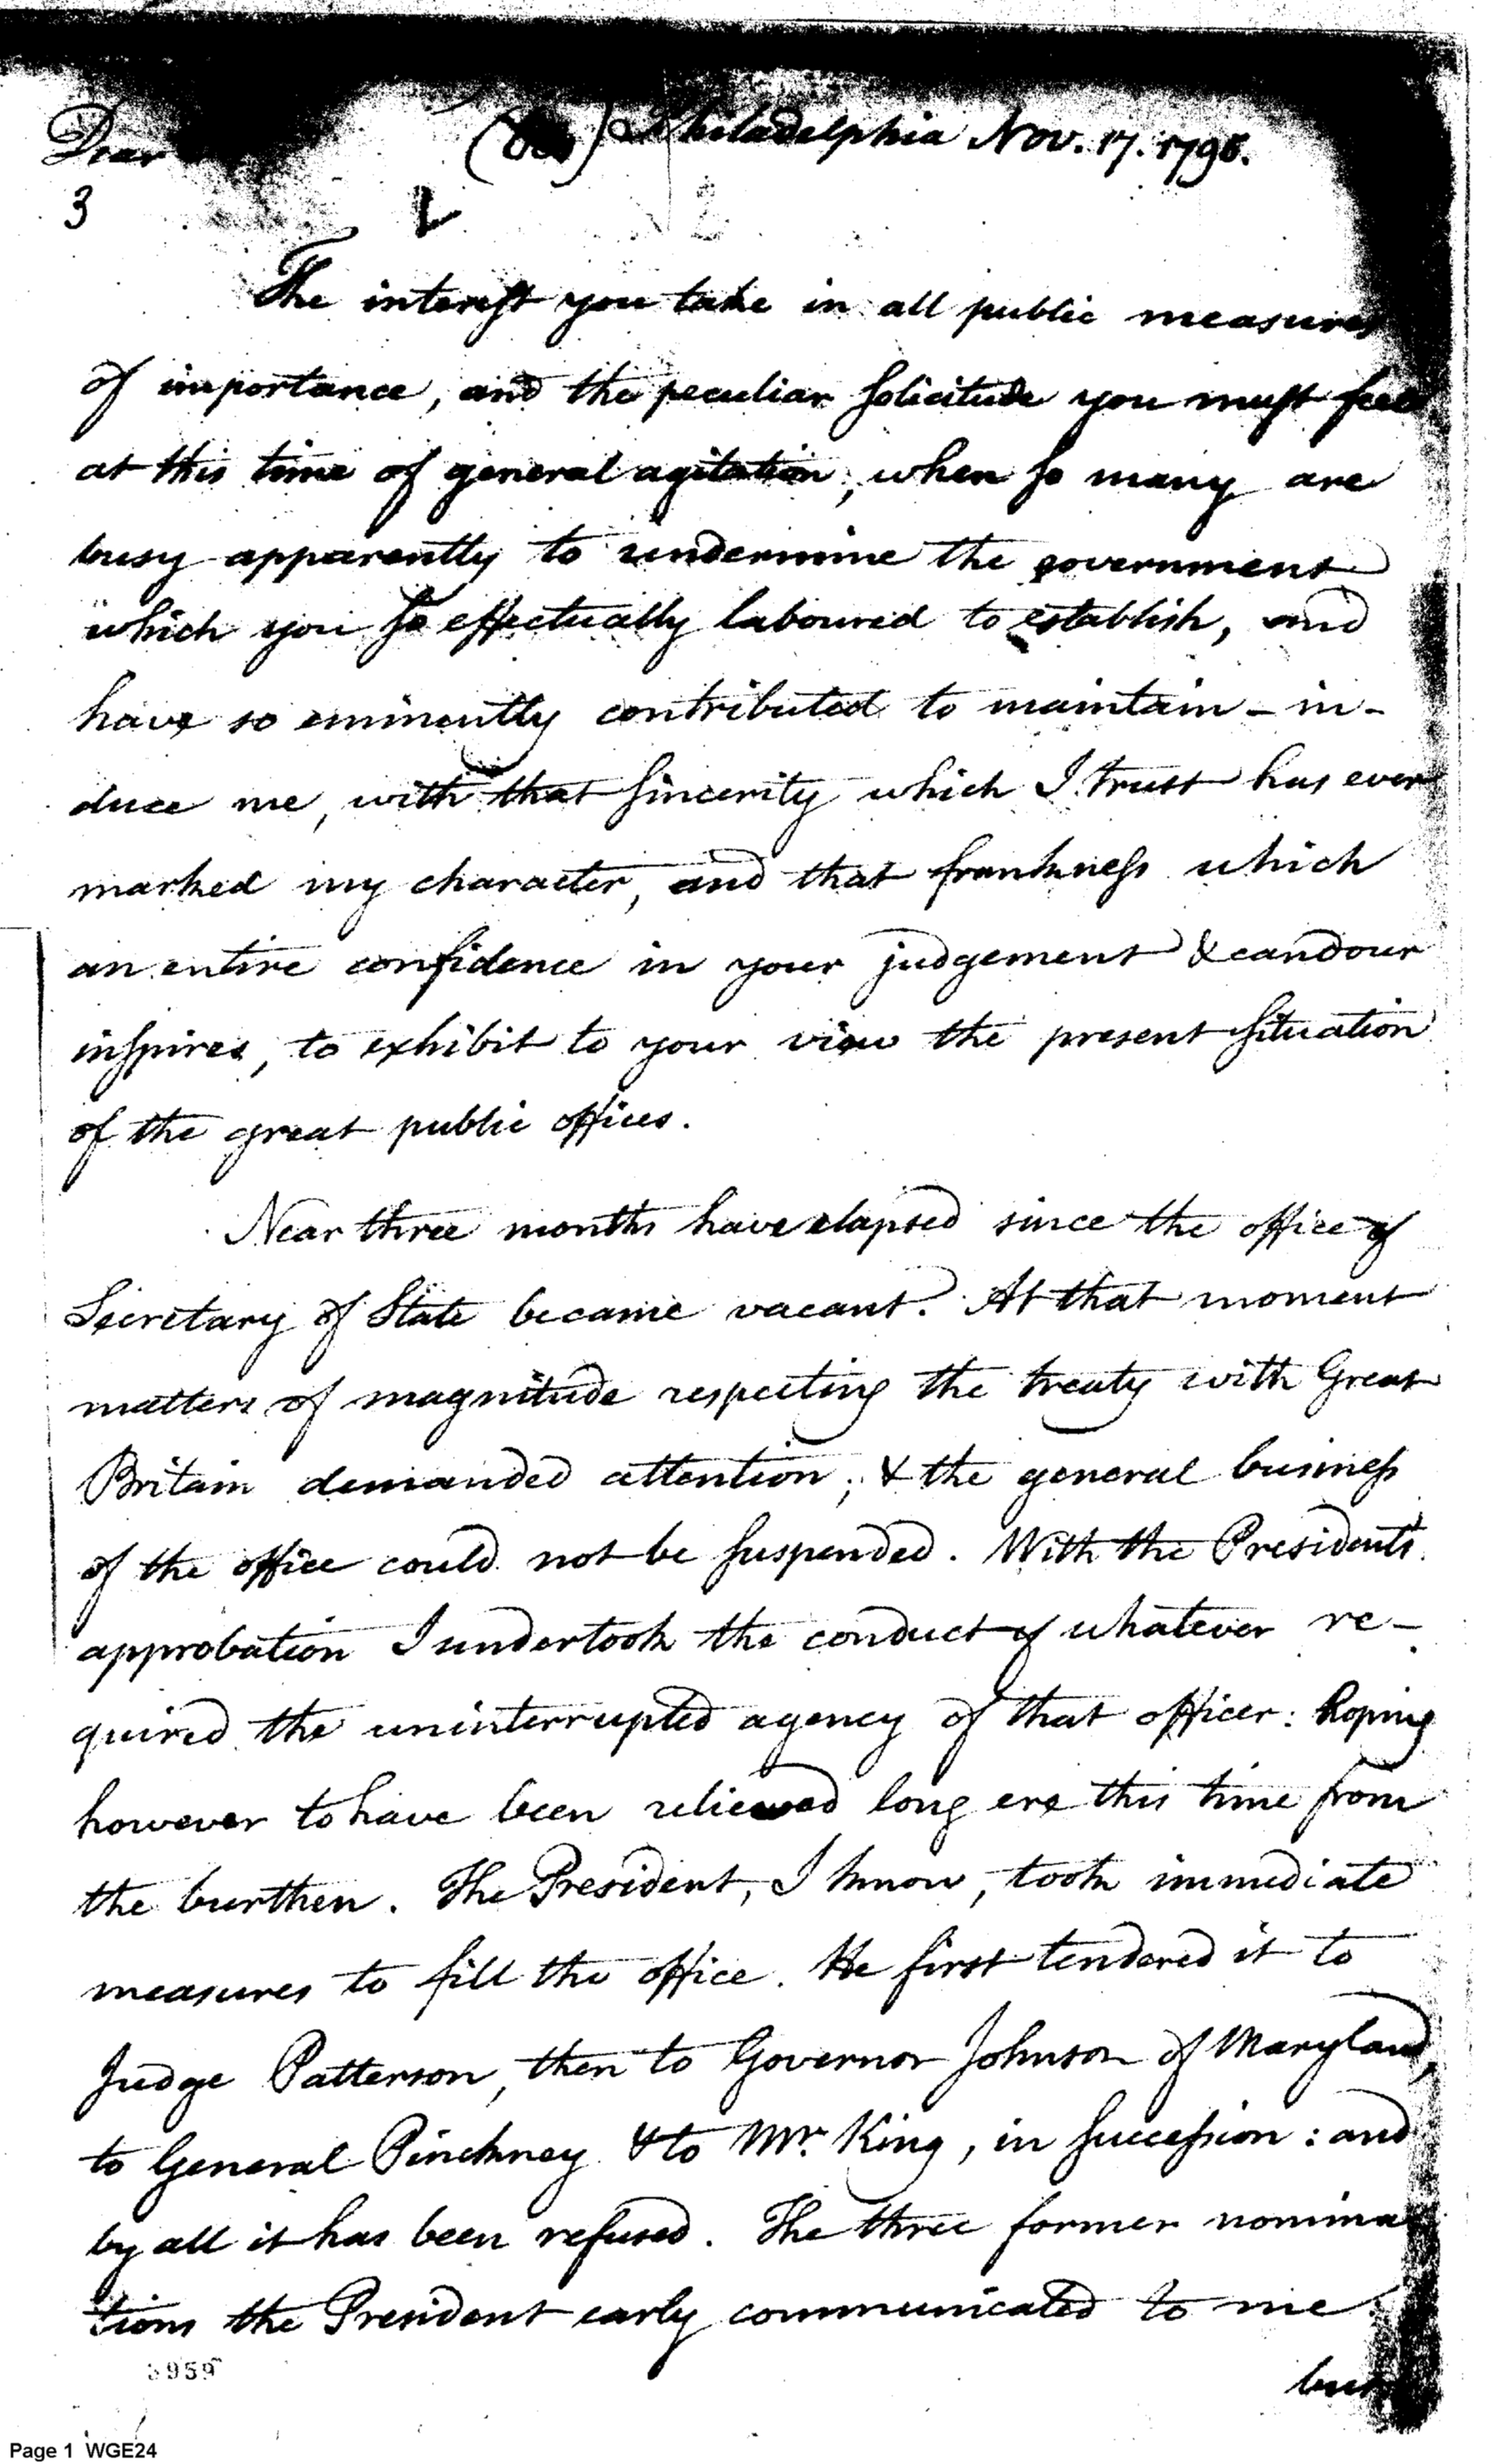 Dear
Philadelphia Nov. 17. 1795.
3
The interest you take in all public measures
of importance, and the peculiar solicitude you must feel
at this time of general agitation, when so many are
busy apparently to undermine the government
which you so effectually laboured to establish, and
have so eminently contributed to maintain - in-
duce me, with that sincerity which I trust has ever
marked my character, and that frankness which
an entire confidence in your judgement & candour
inspires, to exhibit to your view the present situation
of the great public offices.
Near three months have elapsed since the office of
Secretary of State became vacant. At that moment
matters of magnitude respecting the treaty with Great
Britain demanded attention; & the general business
of the office could not be suspended. With the President's
approbation I undertook the conduct of whatever re-
quired the uninterrupted agency of that officer: hoping
however to have been relieved long ere this time from
the burthen. The President, I know, took immediate
measures to fill the office. He first tendered it to
Judge Patterson, then to Governor Johnson of Maryland,
to General Pinckney & to Mr. King, in succession: and
by all it has been refused. The three former nomina
tions the President early communicated to me.
but
3959
Page 1 WGE24